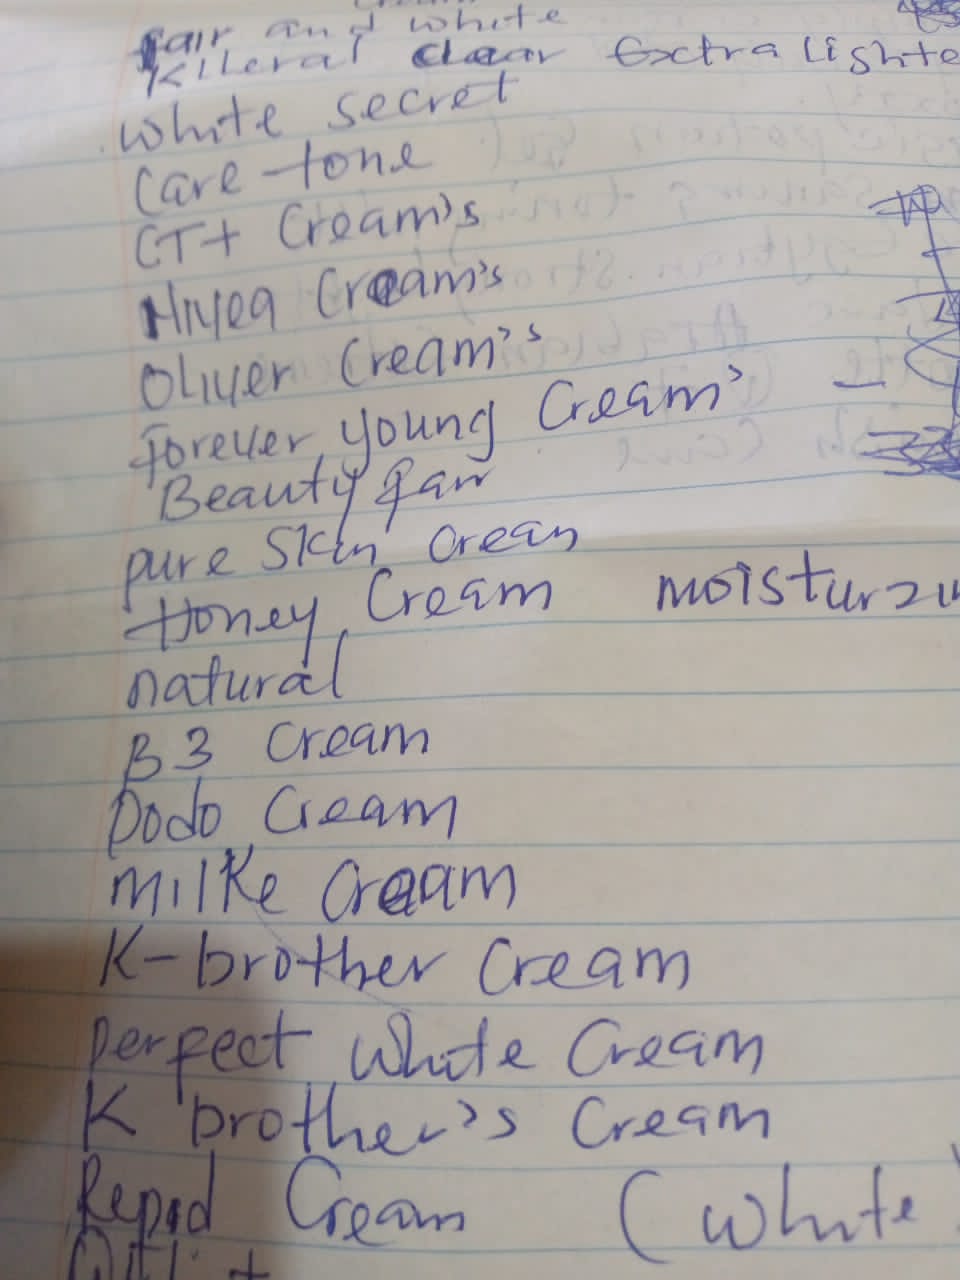 fair and white
Klleral clear Extra Lighte
white secret
Care-tone
CT+ Cream's
Nivea Cream's
Oliver Cream's
forever young Cream'
Beauty fair
pure Skin crean
Honey Cream moisturzin
natural
B3 cream
Dodo Cream
milke Cream
K-brother Cream
perfect white Cream
K brother's Cream
Repid Cream (white)